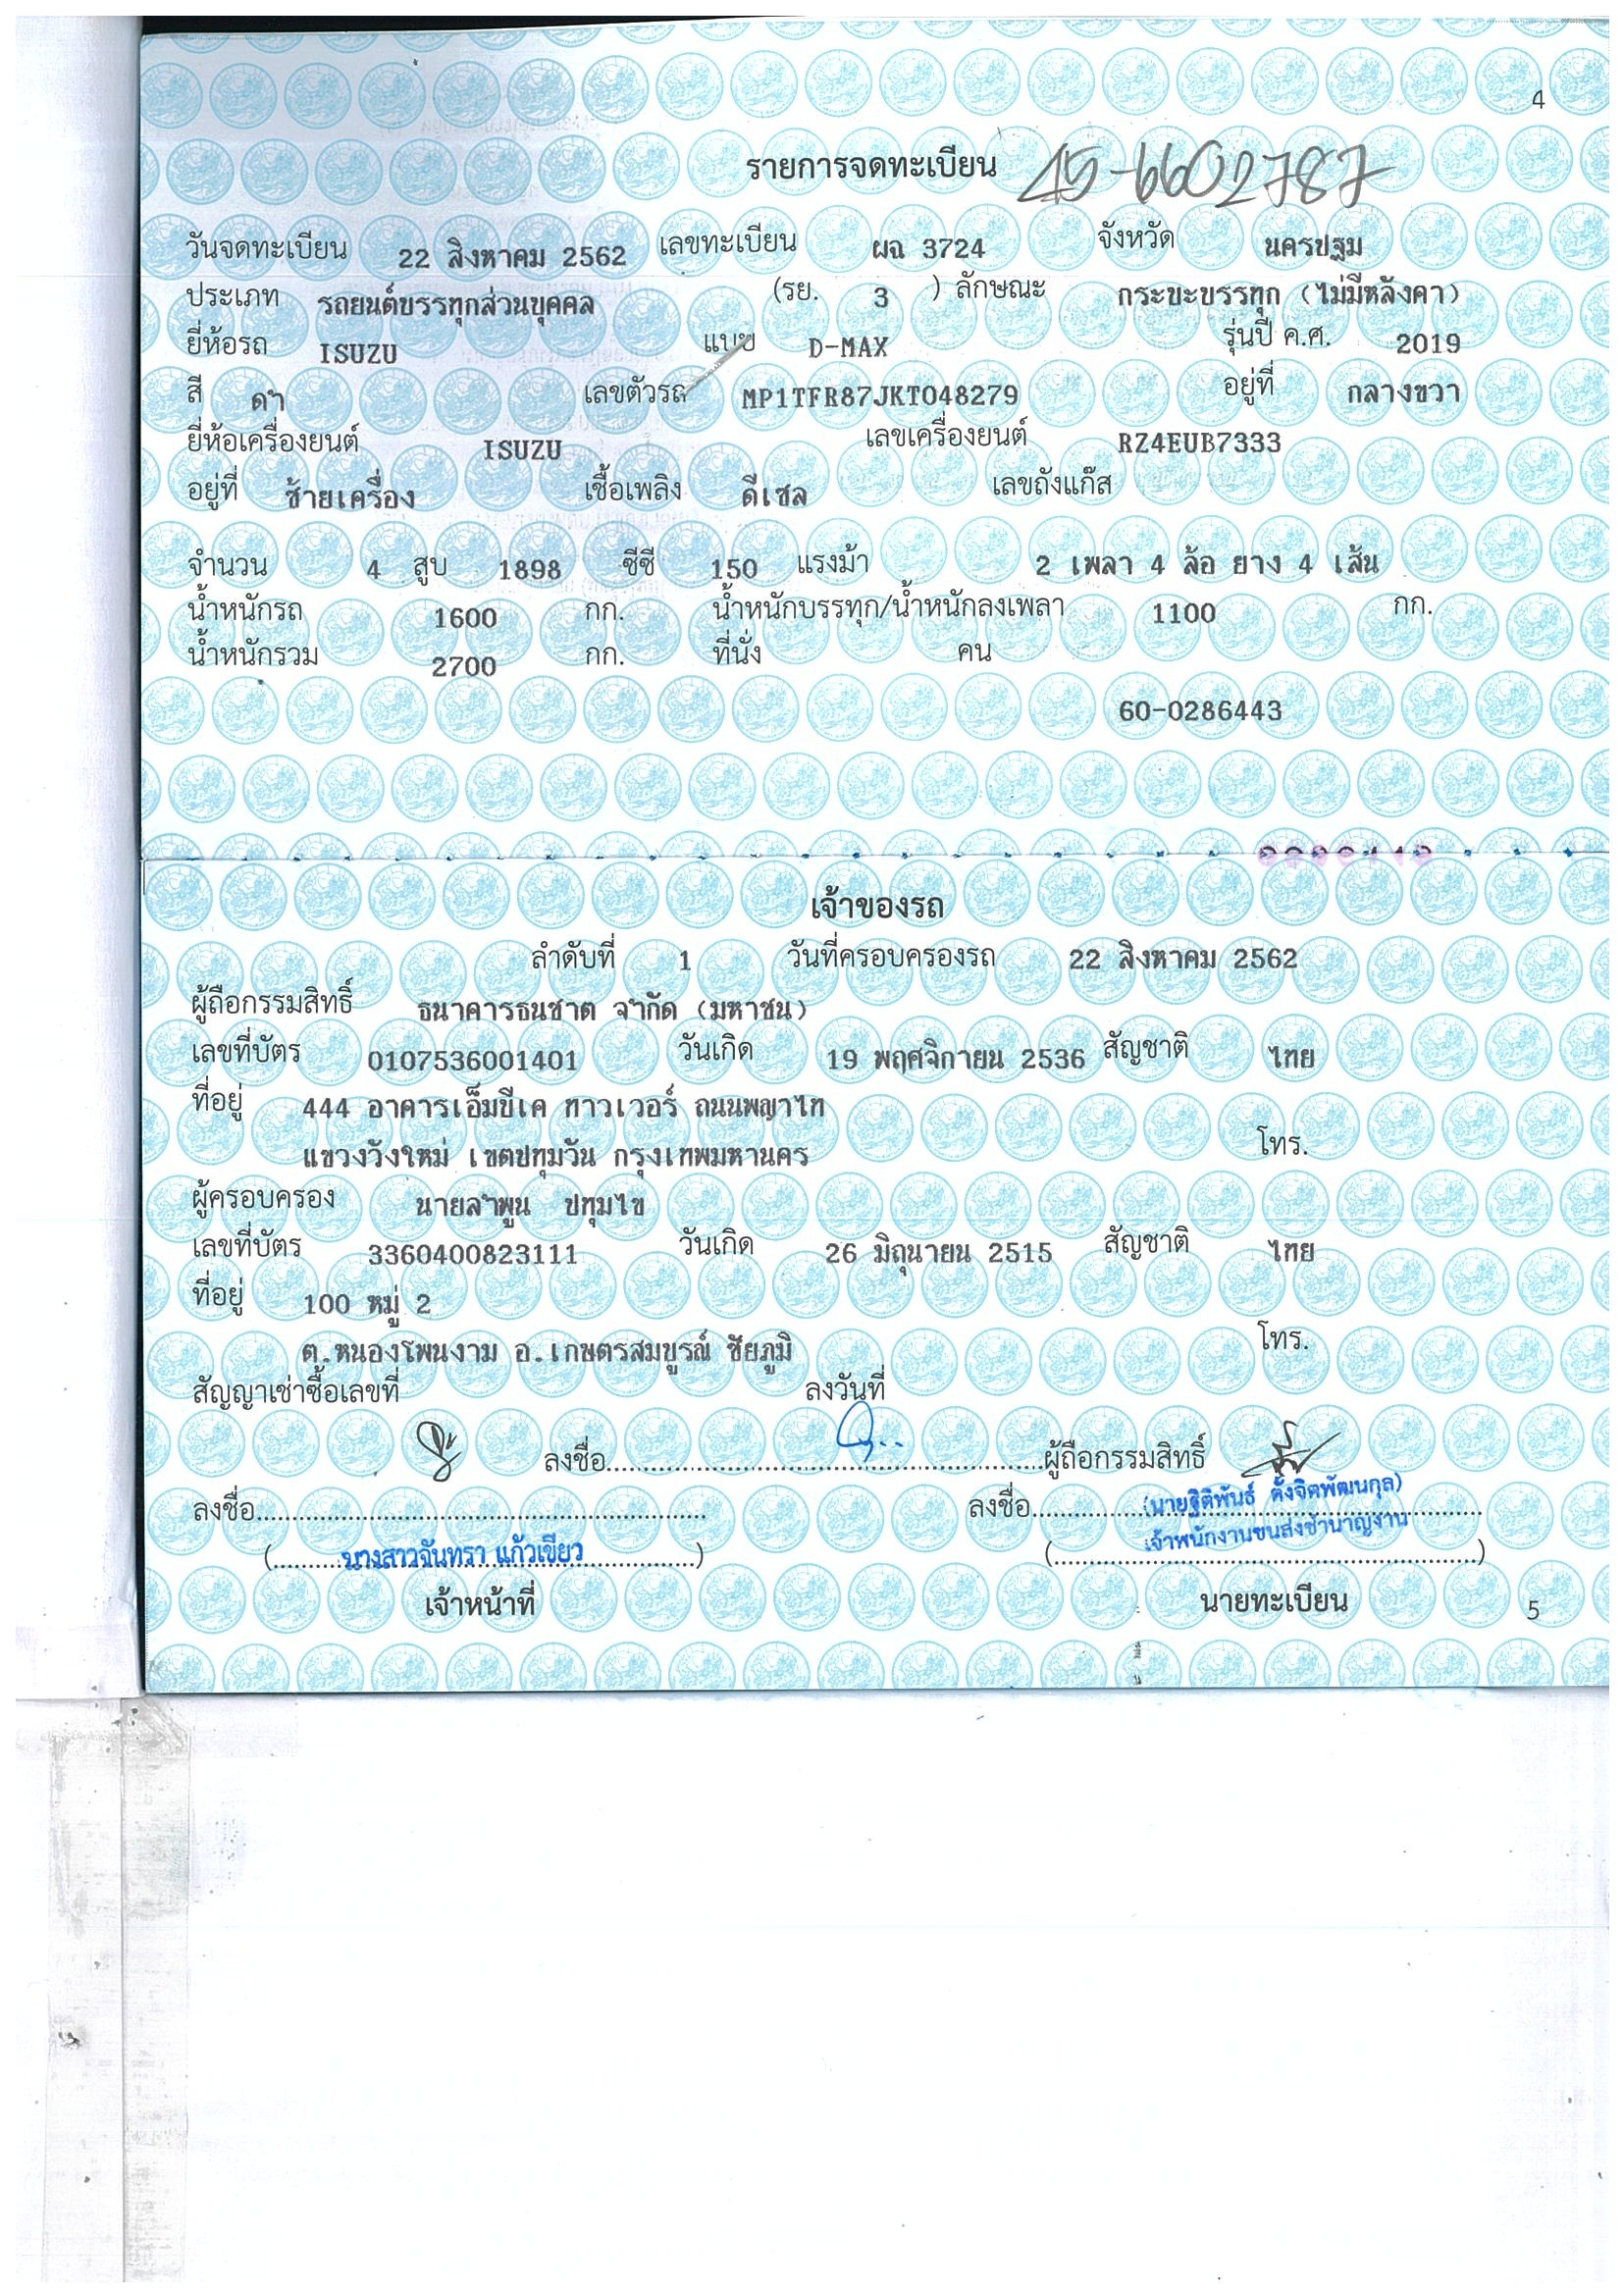 4
รายการจดทะเบียน 45-6602787
วันจดทะเบียน 22 สิงหาคม 2562 เลขทะเบียน ผฉ 3724 จังหวัด นครปฐม
ประเภท รถยนต์บรรทุกส่วนบุคคล (รย. 3 ) ลักษณะ กระบะบรรทุก (ไม่มีหลังคา)
ยี่ห้อรถ ISUZU แบบ D-MAX รุ่นปี ค.ศ. 2019
สี ดำ เลขตัวรถ MP1TFR87JKT048279 อยู่ที่ กลางขวา
ยี่ห้อเครื่องยนต์ ISUZU เลขเครื่องยนต์ RZ4EUB7333
อยู่ที่ ซ้ายเครื่อง เชื้อเพลิง ดีเซล เลขถังแก๊ส
จำนวน 4 สูบ 1898 ซีซี 150 แรงม้า 2 เพลา 4 ล้อ ยาง 4 เส้น
น้ำหนักรถ 1600 กก. น้ำหนักบรรทุก/น้ำหนักลงเพลา 1100 กก.
น้ำหนักรวม 2700 กก. ที่นั่ง คน
60-0286443
เจ้าของรถ
ลำดับที่ 1 วันที่ครอบครองรถ 22 สิงหาคม 2562
ผู้ถือกรรมสิทธิ์ ธนาคารธนชาต จำกัด (มหาชน)
เลขที่บัตร 0107536001401 วันเกิด 19 พฤศจิกายน 2536 สัญชาติ ไทย
ที่อยู่ 444 อาคารเอ็มบีเค ทาวเวอร์ ถนนพญาไท
แขวงวังใหม่ เขตปทุมวัน กรุงเทพมหานคร โทร.
ผู้ครอบครอง นายลำพูน ปทุมไข
เลขที่บัตร 3360400823111 วันเกิด 26 มิถุนายน 2515 สัญชาติ ไทย
ที่อยู่ 100 หมู่ 2
ต.หนองโพนงาม อ.เกษตรสมบูรณ์ ชัยภูมิ โทร.
สัญญาเช่าซื้อเลขที่ ลงวันที่
ลงชื่อ..........ผู้ถือกรรมสิทธิ์
ลงชื่อ.......... ลงชื่อ..........(นายฐิติพันธ์ ตั้งจิตพัฒนกุล)
(..........นางสาวจันทรา แก้วเขียว..........) (..........เจ้าพนักงานขนส่งชำนาญงาน..........)
เจ้าหน้าที่ นายทะเบียน 5